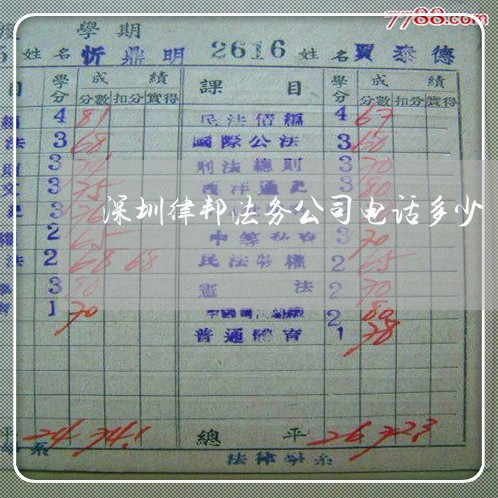 7788.com
學期
姓名 忻鼎明 2616 姓名 賈泰德
目 學分 成績 課目 學分 成績
分數 扣分 實得 分數 扣分 實得
4 81 民法債編 4 67
法 3 68 國際公法 3 60
3 刑法總則 3 70
3 75 西洋通史 3 80
深圳律邦法务公司电话多少
2 65 3 70
法 2 68 68 民法物權 2 65
3 80 憲法 2 70
1 70 2 80
普通體育 1 78
平 24 74.1 總平 26 72.3
系 法律學系